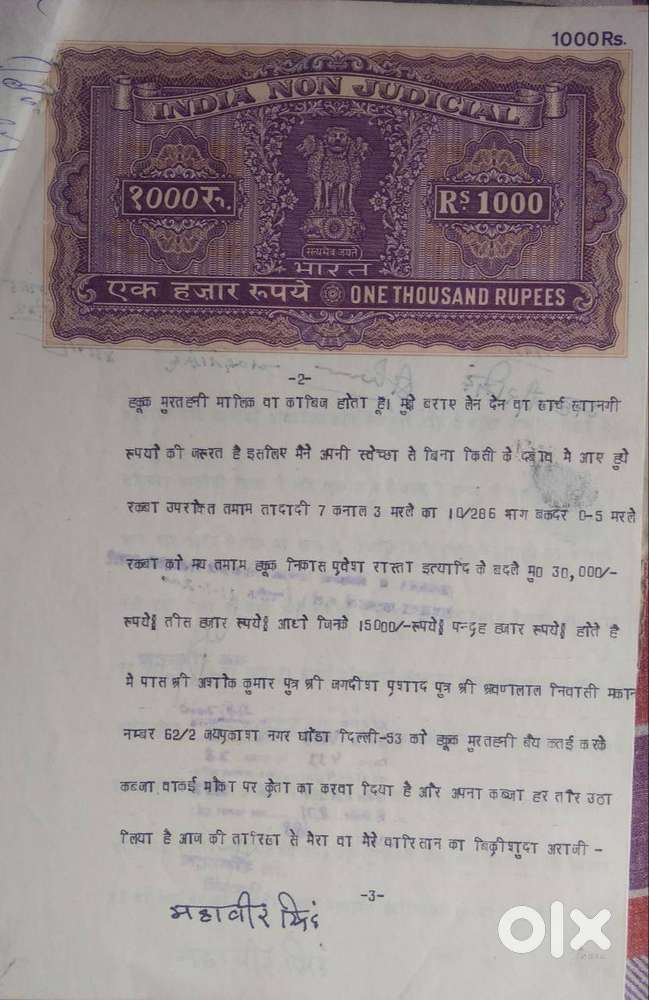 1000Rs.
INDIA NON JUDICIAL
१000रु.
RS 1000
सत्यमेव जयते
भारत
एक हजार रुपये ONE THOUSAND RUPEES
-2-
हकूक मुरतहनी मालिक वा काबिज होता हूं। मुझे बराए लेन देन वा खर्च खानगी
रूपयो की जरूरत है इसलिए मैने अपनी स्वेच्छा से बिना किसी के दबाव मे आए हुये
रकबा उपरोक्त तमाम तादादी 7 कनाल 3 मरले का 10/286 भाग बकदर 0-5 मरले
रकबा को मय तमाम हकूक निकास प्रवेश रास्ता इत्यादि के बदले मु0 30,000/-
रूपये॥ तीस हजार रूपये॥ आधो जिनके 15000/-रूपये॥ पन्द्रह हजार रूपये॥ होते है
मे पास श्री अशोक कुमार पुत्र श्री जगदीश प्रशाद पुत्र श्री श्रवणलाल निवासी मकान
नम्बर 62/2 जयप्रकाश नगर घोंडा दिल्ली-53 को हकूक मुरतहनी बैय कतई करके
कब्जा वाकई मौका पर क्रेता का करवा दिया है और अपना कब्जा हर तौर उठा
लिया है आज की तारिख से मेरा वा मेरे वारिसान का बिक्रीशुदा अराजी -
-3-
महावीर सिंह
olx